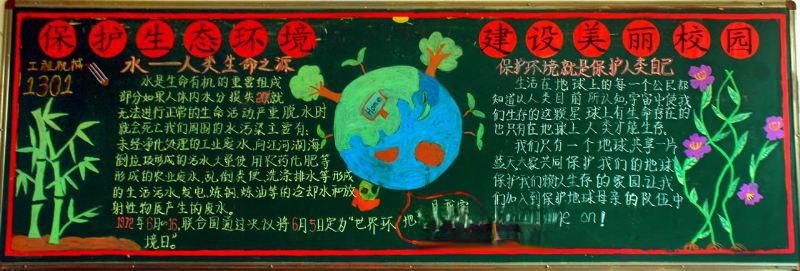 保护生态环境
建设美丽校园
工程机械
1301
水——人类生命之源
水是生命有机的重要组成
部分如果人体内水分损失20%就
无法进行正常的生命活动严重脱水时
就会死亡我们周围的水污染主要有:
未经净化处理的工业废水,向江河湖海
倒垃圾形成的污水大量使用农药化肥等
形成的农业废水,乱倒粪便,洗涤排水等形成
的生活污水,发电,炼钢,炼油等的冷却水和放
射性物质产生的废水。
1972年6月16,联合国通过决议将6月5日定为“世界环
境日”。
Home
地
保护环境就是保护人类自己
生活在地球上的每一个公民都
知道从人类目前所认知,宇宙中使我
们生存的这颗星球上有生命存在的
也只有在地球上人类才能生存.
我们只有一个地球共享一片
蓝天大家共同保护我们的地球
保护我们赖以生存的家园,让我
们加入到保护地球母亲的队伍中
on!